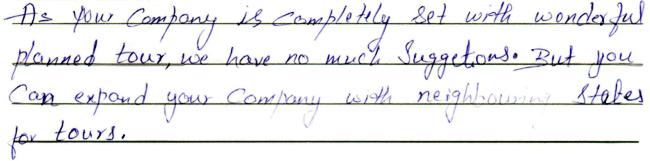 As your Company is Completely Set with wonderful
planned tour, we have no much Suggetions. But you
Can expand your Company with neighbouring States
for tours.